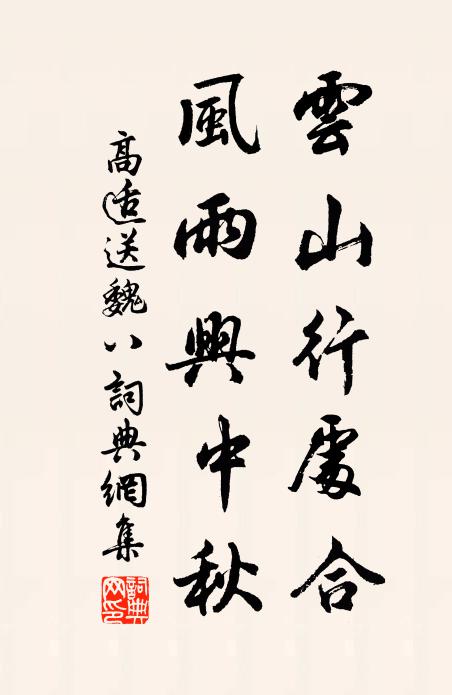 雲山行處合
風雨興中秋
高适送魏八詞典網集
詞典網印